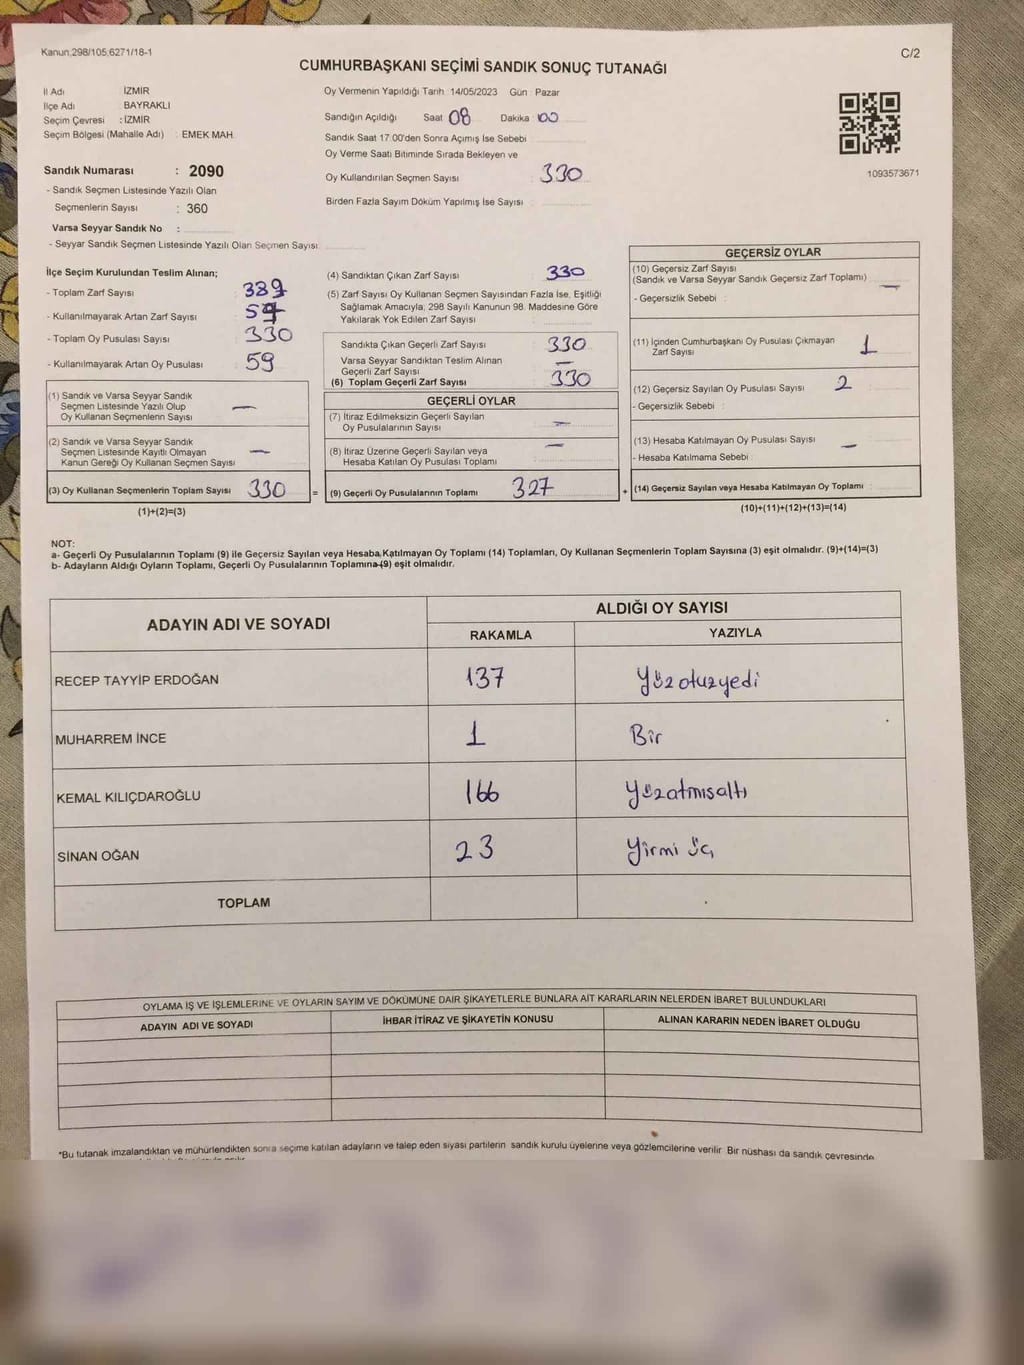 Kanun,298/105,6271/18-1
C/2
CUMHURBAŞKANI SEÇİMİ SANDIK SONUÇ TUTANAĞI
İl Adı : İZMİR
İlçe Adı : BAYRAKLI
Seçim Çevresi : İZMİR
Seçim Bölgesi (Mahalle Adı) : EMEK MAH.
Sandık Numarası : 2090
- Sandık Seçmen Listesinde Yazılı Olan
Seçmenlerin Sayısı : 360
Varsa Seyyar Sandık No :
- Seyyar Sandık Seçmen Listesinde Yazılı Olan Seçmen Sayısı
Oy Vermenin Yapıldığı Tarih 14/05/2023 Gün : Pazar
Sandığın Açıldığı Saat 08 Dakika 00
Sandık Saat 17:00'den Sonra Açımış İse Sebebi
Oy Verme Saati Bitiminde Sırada Bekleyen ve
Oy Kullandırılan Seçmen Sayısı : 330
Birden Fazla Sayım Döküm Yapılmış İse Sayısı
1093573671
İlçe Seçim Kurulundan Teslim Alınan;
- Toplam Zarf Sayısı 389
- Kullanılmayarak Artan Zarf Sayısı
- Toplam Oy Pusulası Sayısı 330
- Kullanılmayarak Artan Oy Pusulası 59
(1) Sandık ve Varsa Seyyar Sandık
Seçmen Listesinde Yazılı Olup
Oy Kullanan Seçmenlerin Sayısı —
(2) Sandık ve Varsa Seyyar Sandık
Seçmen Listesinde Kayıtlı Olmayan
Kanun Gereği Oy Kullanan Seçmen Sayısı —
(3) Oy Kullanan Seçmenlerin Toplam Sayısı 330
(1)+(2)=(3)
(4) Sandıktan Çıkan Zarf Sayısı 330
(5) Zarf Sayısı Oy Kullanan Seçmen Sayısından Fazla İse, Eşitliği
Sağlamak Amacıyla, 298 Sayılı Kanunun 98. Maddesine Göre
Yakılarak Yok Edilen Zarf Sayısı
Sandıkta Çıkan Geçerli Zarf Sayısı 330
Varsa Seyyar Sandıktan Teslim Alınan
Geçerli Zarf Sayısı —
(6) Toplam Geçerli Zarf Sayısı 330
GEÇERLİ OYLAR
(7) İtiraz Edilmeksizin Geçerli Sayılan
Oy Pusulalarının Sayısı —
(8) İtiraz Üzerine Geçerli Sayılan veya
Hesaba Katılan Oy Pusulası Toplamı —
= (9) Geçerli Oy Pusulalarının Toplamı 327
GEÇERSİZ OYLAR
(10) Geçersiz Zarf Sayısı
(Sandık ve Varsa Seyyar Sandık Geçersiz Zarf Toplamı) —
- Geçersizlik Sebebi :
(11) İçinden Cumhurbaşkanı Oy Pusulası Çıkmayan
Zarf Sayısı 1
(12) Geçersiz Sayılan Oy Pusulası Sayısı 2
- Geçersizlik Sebebi :
(13) Hesaba Katılmayan Oy Pusulası Sayısı —
- Hesaba Katılmama Sebebi :
+ (14) Geçersiz Sayılan veya Hesaba Katılmayan Oy Toplamı
(10)+(11)+(12)+(13)=(14)
NOT:
a- Geçerli Oy Pusulalarının Toplamı (9) ile Geçersiz Sayılan veya Hesaba Katılmayan Oy Toplamı (14) Toplamları, Oy Kullanan Seçmenlerin Toplam Sayısına (3) eşit olmalıdır. (9)+(14)=(3)
b- Adayların Aldığı Oyların Toplamı, Geçerli Oy Pusulalarının Toplamına (9) eşit olmalıdır.
ADAYIN ADI VE SOYADI ALDIĞI OY SAYISI
RAKAMLA YAZIYLA
RECEP TAYYİP ERDOĞAN 137 Yüzotuzyedi
MUHARREM İNCE 1 Bir
KEMAL KILIÇDAROĞLU 166 Yüzatmısaltı
SİNAN OĞAN 23 Yirmi üç
TOPLAM
OYLAMA İŞ VE İŞLEMLERİNE VE OYLARIN SAYIM VE DÖKÜMÜNE DAİR ŞİKAYETLERLE BUNLARA AİT KARARLARIN NELERDEN İBARET BULUNDUKLARI
ADAYIN ADI VE SOYADI İHBAR İTİRAZ VE ŞİKAYETİN KONUSU ALINAN KARARIN NEDEN İBARET OLDUĞU
*Bu tutanak imzalandıktan ve mühürlendikten sonra seçime katılan adayların ve talep eden siyasi partilerin sandık kurulu üyelerine veya gözlemcilerine verilir. Bir nüshası da sandık çevresinde